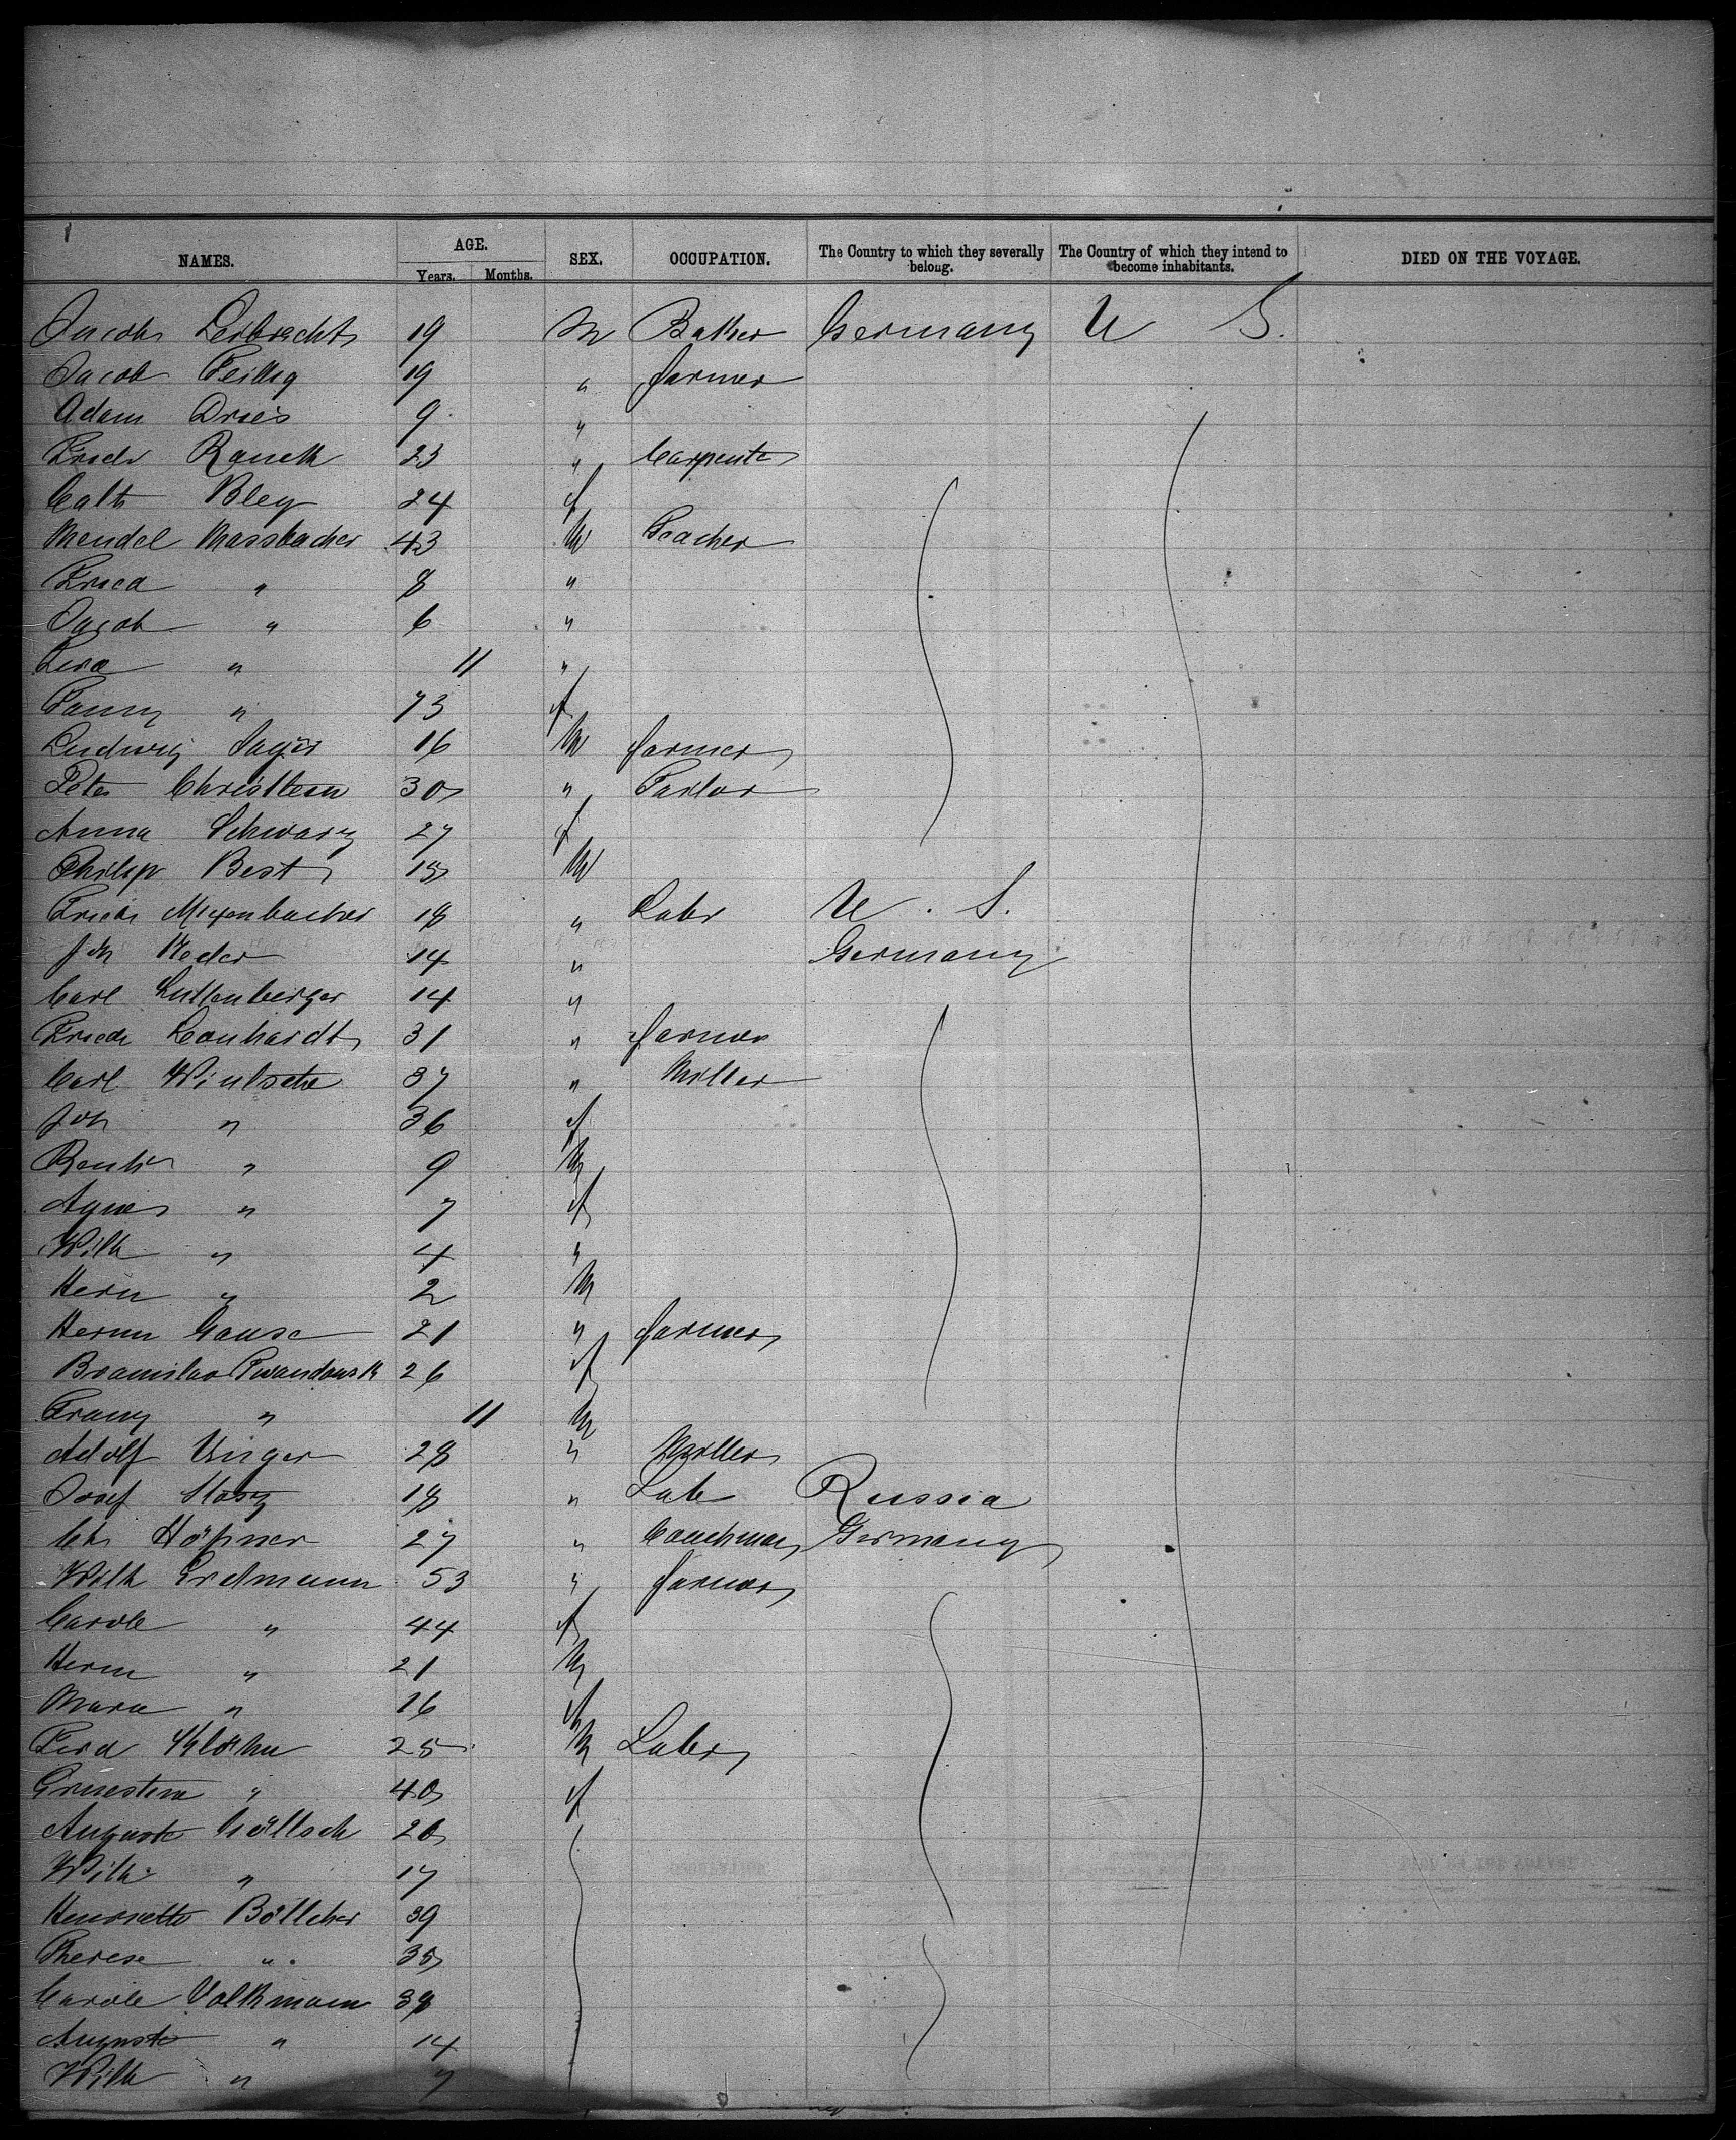 NAMES. AGE. SEX. OCCUPATION. The Country to which they severally belong. The Country of which they intend to become inhabitants. DIED ON THE VOYAGE.
Years. Months.
Jacob Leibrecht 19 M Baker Germany U S.
Jacob Feillig 19 " farmer
Adam Dries 9 "
Friedr Rauch 23 " Carpenter
Cath Bley 24 f
Mendel Massbacher 43 M Teacher
" 8 "
Jacob " 6 "
" 11 "
Fanny " 73 f
Ludwig 16 M farmer
Peter Christlein 30 " Tailor
Anna Schwarz 27 f
Philipp Best 15 M
Friedr 18 " Labr U. S.
Joh Reder 14 " Germany
Carl Luttenberger 14 "
Friedr Leonhardt 31 " farmer
Carl 37 " Miller
Joh " 36 f
" 9 M
Agnes " 7 f
Wilh " 4 "
Herm " 2 M
Herm Gause 21 " farmer
26 f
Franz " 11 M
Adolf Unger 28 " Miller
Josef 18 " Labr Russia
Chr Höpner 27 " Coachman Germany
Wilh Erdmann 53 " farmer
Carole " 44 f
Herm " 21 M
Maria " 16 f
Ferd 25 M Labr
Ernestine " 40 f
Auguste 20
Wilh " 17
Henriette Böttcher 39
Therese " 35
Carole Volkmann 38
Auguste " 14
Wilh " 7